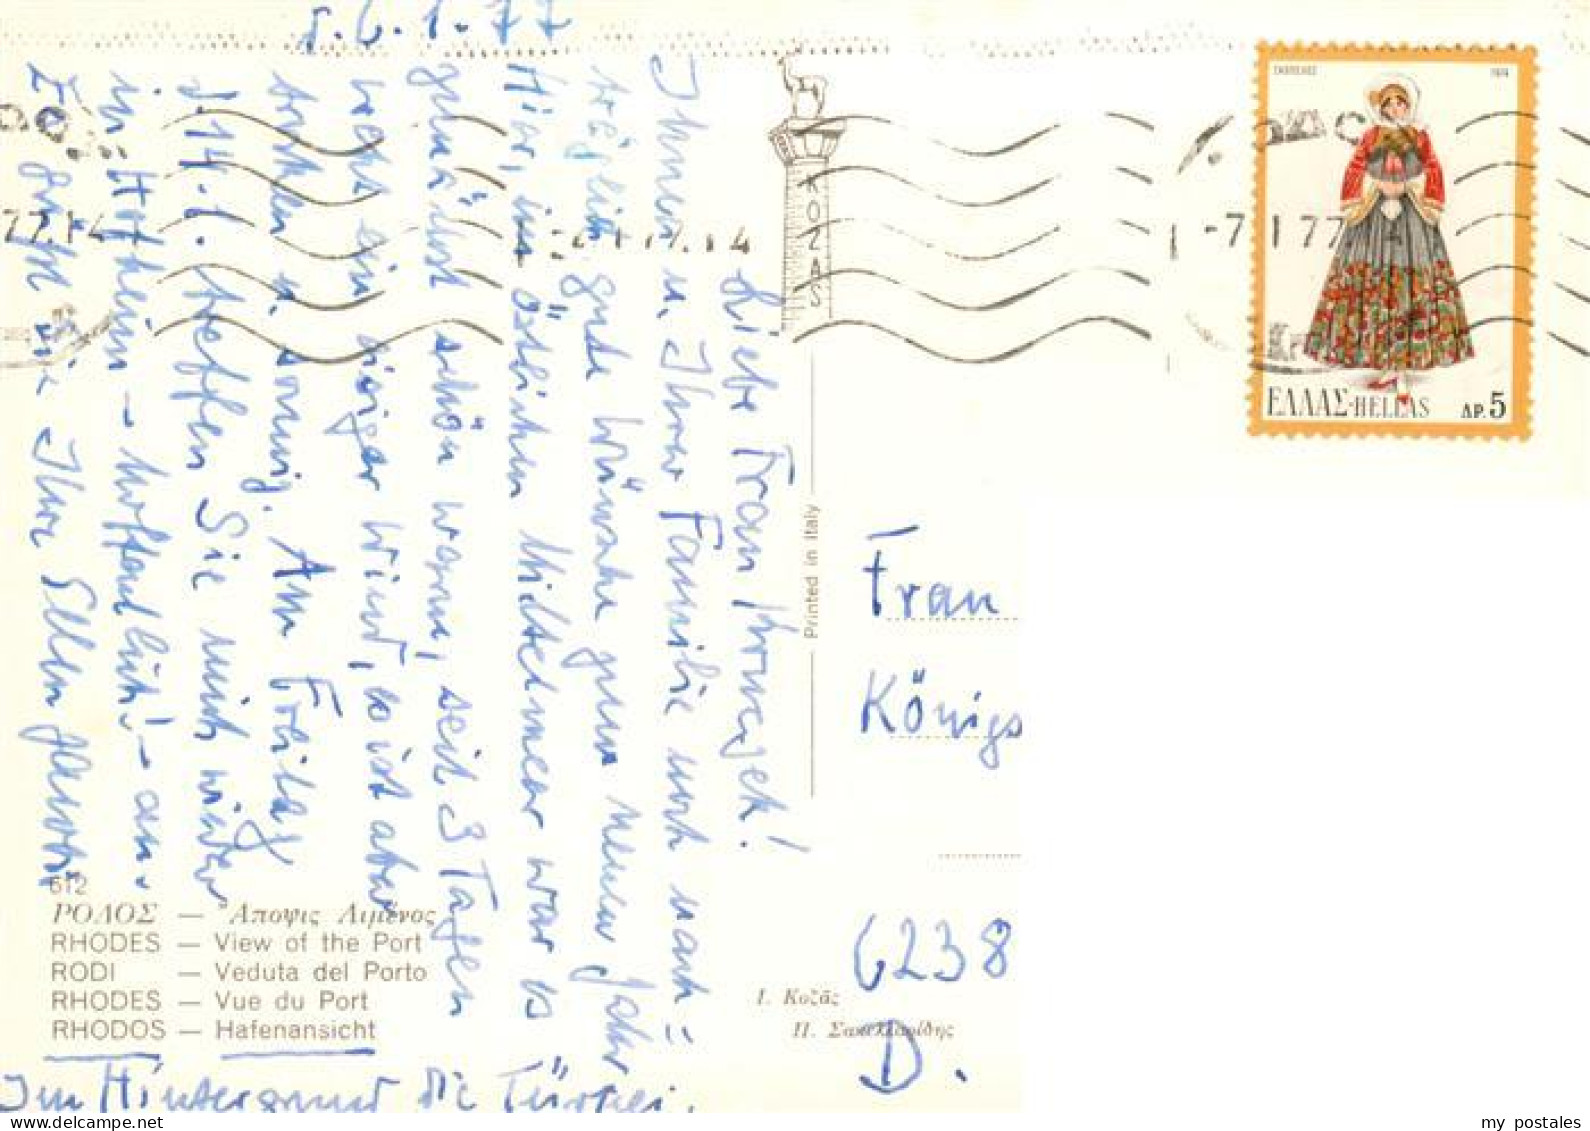 d. 6.1.77
Liebe Frau
Ihnen u. Ihrer Familie noch nach=
träglich gute Wünsche zum neuen Jahr
Hier, im östlichen Mittelmeer war es
zunächst schön warm, seit 3 Tagen
weht ein eisiger Wind, es ist aber
trocken u. sonnig. Am Freitag
d. 14.1. treffen Sie mich wieder
in Hofheim – hoffentlich! – an.
Es grüßt Sie Ihre Ellen
612
ΡΟΔΟΣ — Ἄποψις Λιμένος
RHODES — View of the Port
RODI — Veduta del Porto
RHODES — Vue du Port
RHODOS — Hafenansicht
Im Hintergrund die Türkei.
KOZAS
Printed in Italy
Ι. Κοζᾶς
Frau
Königs
6238
D.
ΣΚΟΠΕΛΟΣ 1974
-7 I 77
77.14
ΕΛΛΑΣ-HELLAS ΔΡ. 5
my postales